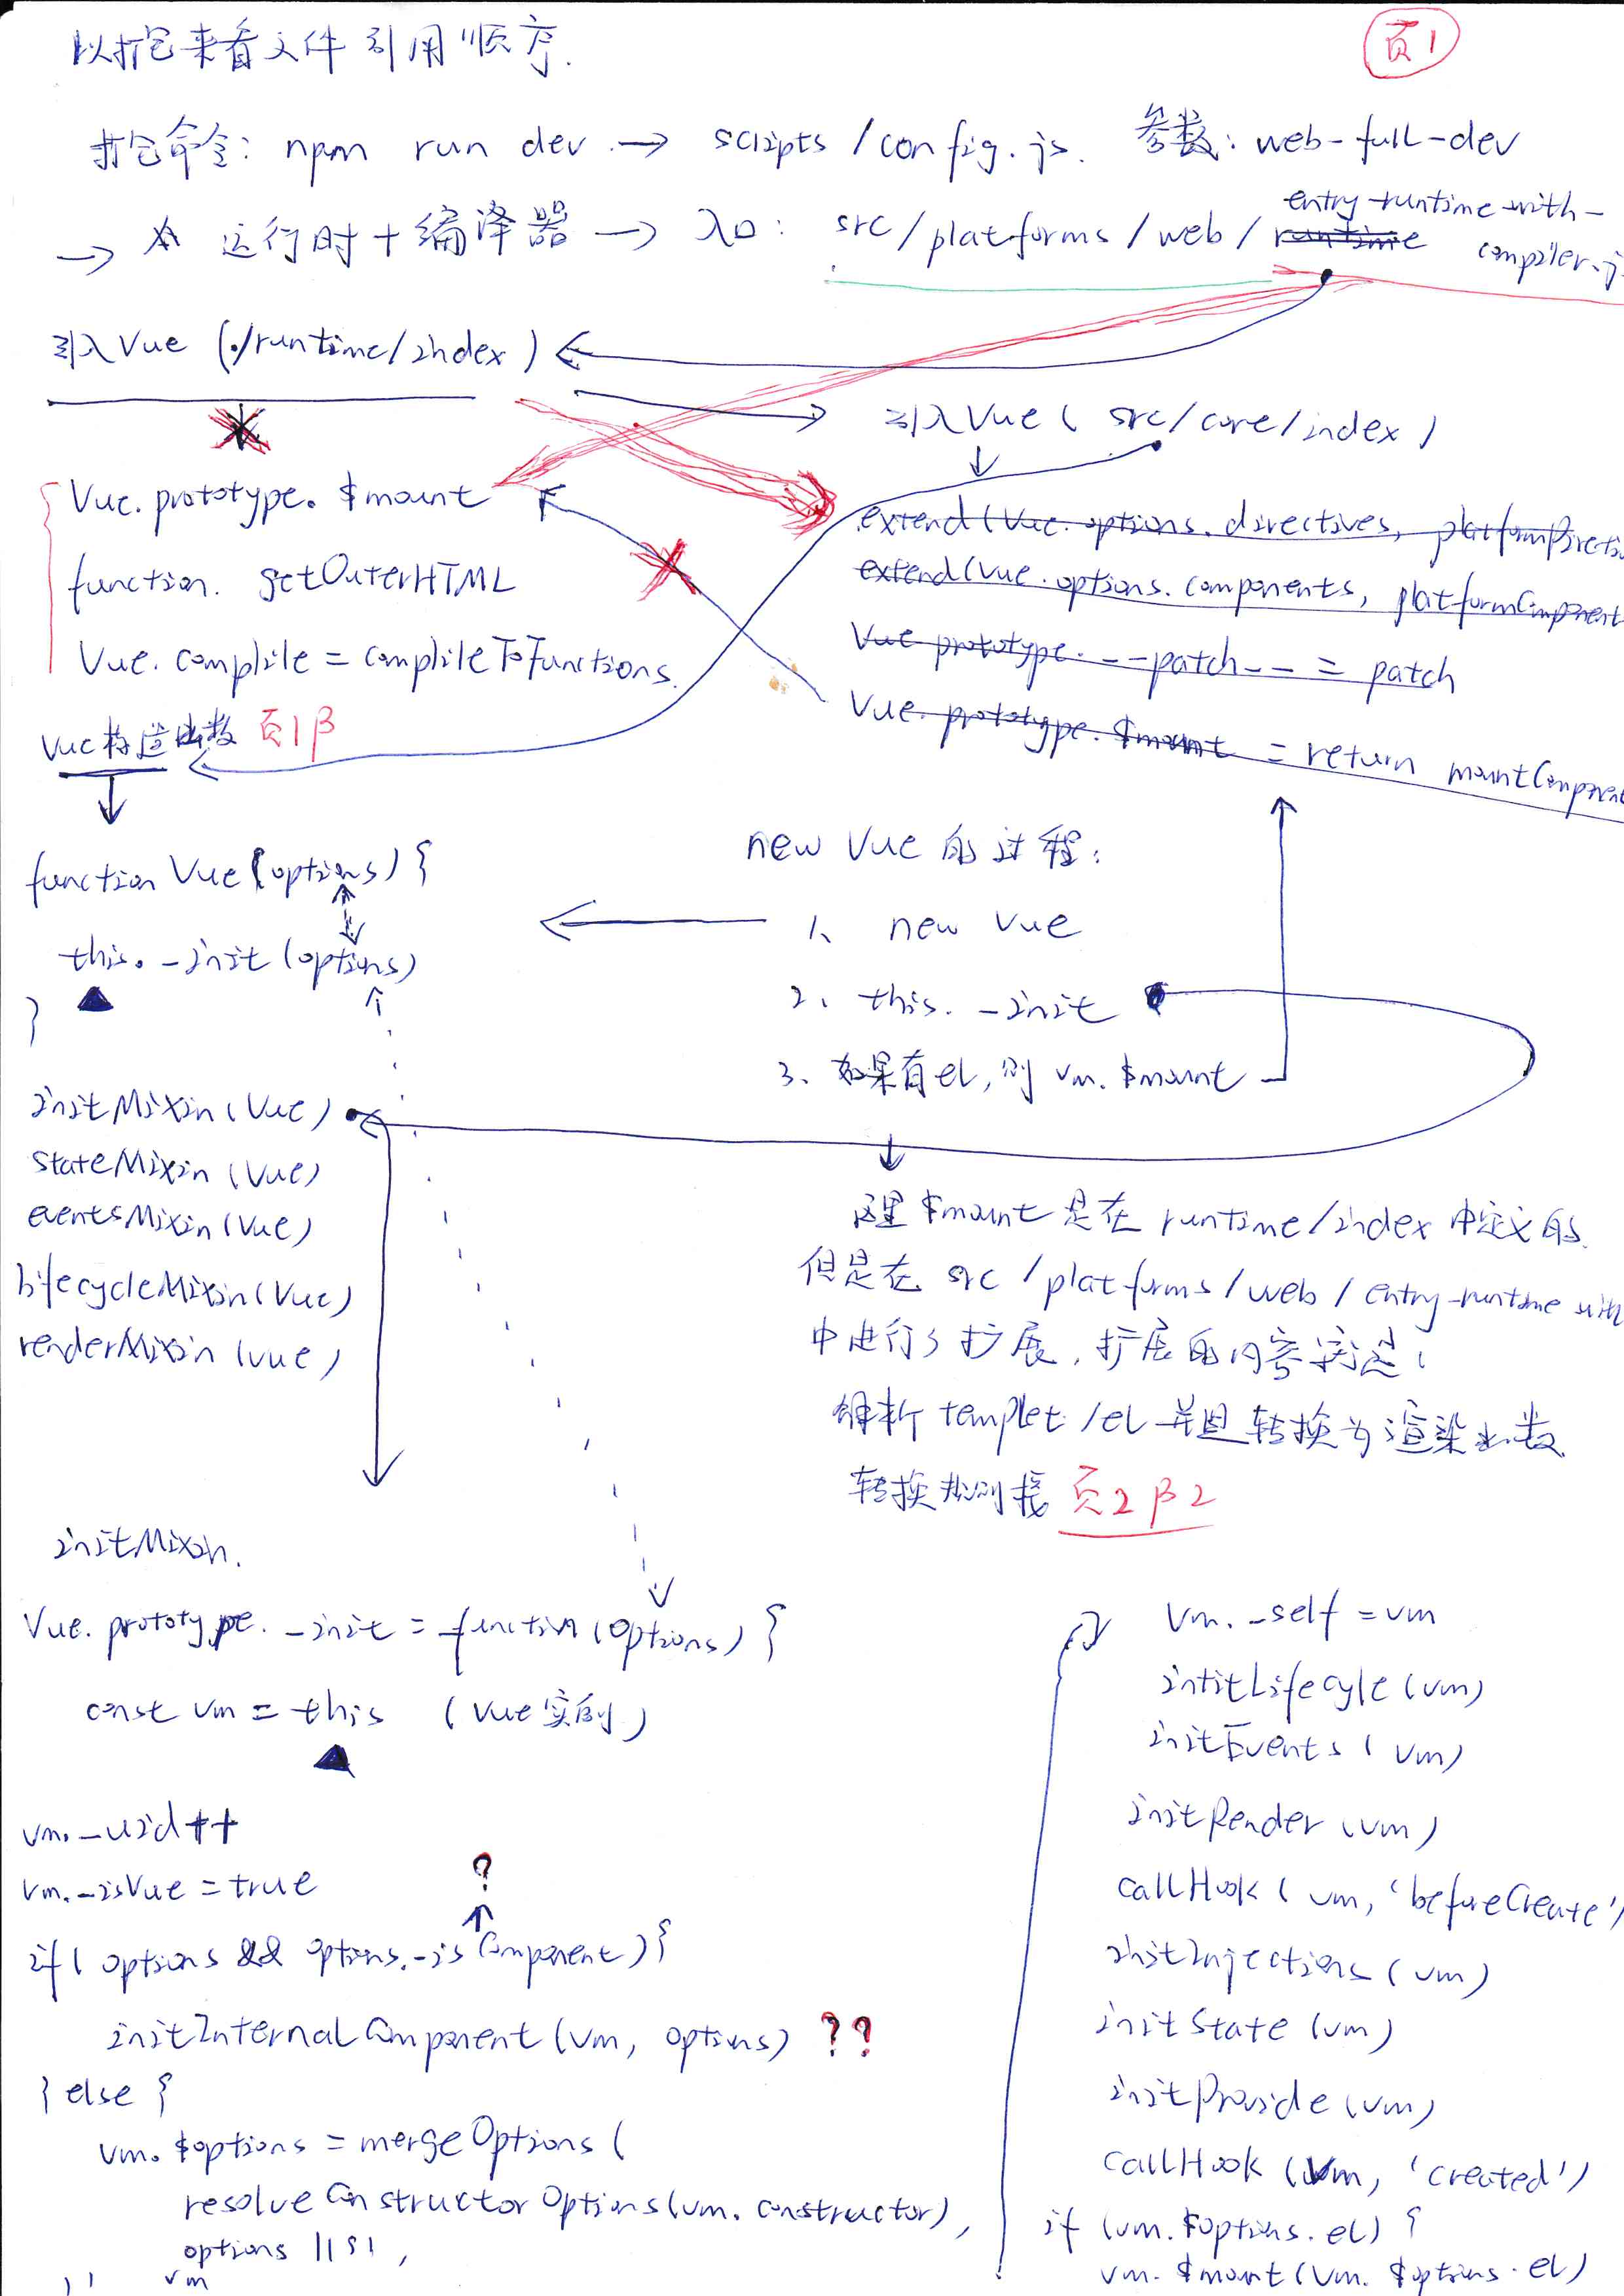 以打包来看文件引用顺序.
页1
打包命令: npm run dev → scripts/config.js. 参数: web-full-dev
→ 运行时+编译器 → 入口: src/platforms/web/runtime entry-runtime-with-compiler.j
引入Vue (./runtime/index)
引入Vue ( src/core/index )
Vue.prototype.$mount
function. getOuterHTML
Vue.complile = complileToFunctions.
extend(Vue.options.directives, platformDirecti
extend(Vue.options.components, platformComponent
Vue prototype.--patch-- = patch
Vue.prototype.$mount = return mountComponent
Vue构造函数 页1β
function Vue(options) {
this._init(options)
}
new Vue 的过程:
1、 new Vue
2、 this._init
3、如果有el, 则 vm.$mount
initMixin(Vue)
stateMixin(Vue)
eventsMixin(Vue)
lifecycleMixin(Vue)
renderMixin(Vue)
这里 $mount 是在 runtime/index 中定义的
但是在 src/platforms/web/entry-runtime with
中进行了扩展, 扩展的内容
解析 templet/el 并且转换为渲染函数
转换规则接 页2β2
initMixin.
Vue.prototype._init = function(options) {
const vm = this (Vue实例)
vm._uid++
vm._isVue = true
?
if( options && options._isComponent){
initInternalComponent(vm, options) ??
} else {
vm.$options = mergeOptions(
resolveConstructorOptions(vm.constructor),
options ||{},
vm
vm._self = vm
intitLifecyle(vm)
initEvents(vm)
initRender(vm)
callHook(vm,'beforeCreate')
initInjections(vm)
initState(vm)
initProvide(vm)
callHook(vm, 'created')
if (vm.$options.el) {
vm.$mount(vm.$options.el)